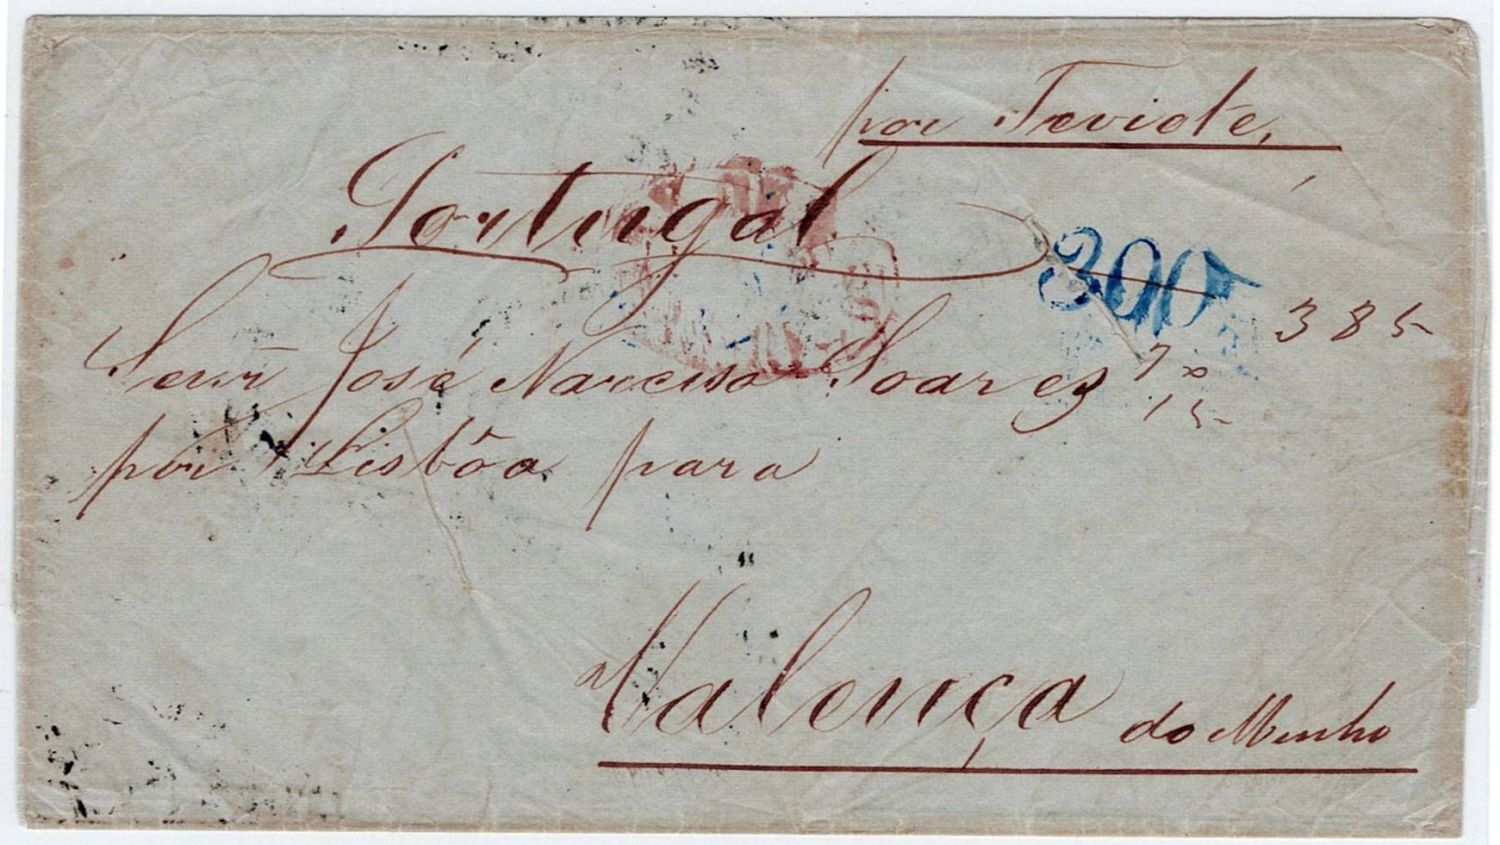 por Teviote,
Portugal
300
385
Senr José Narciso Soares
15
por Lisbôa para
Valença do Minho